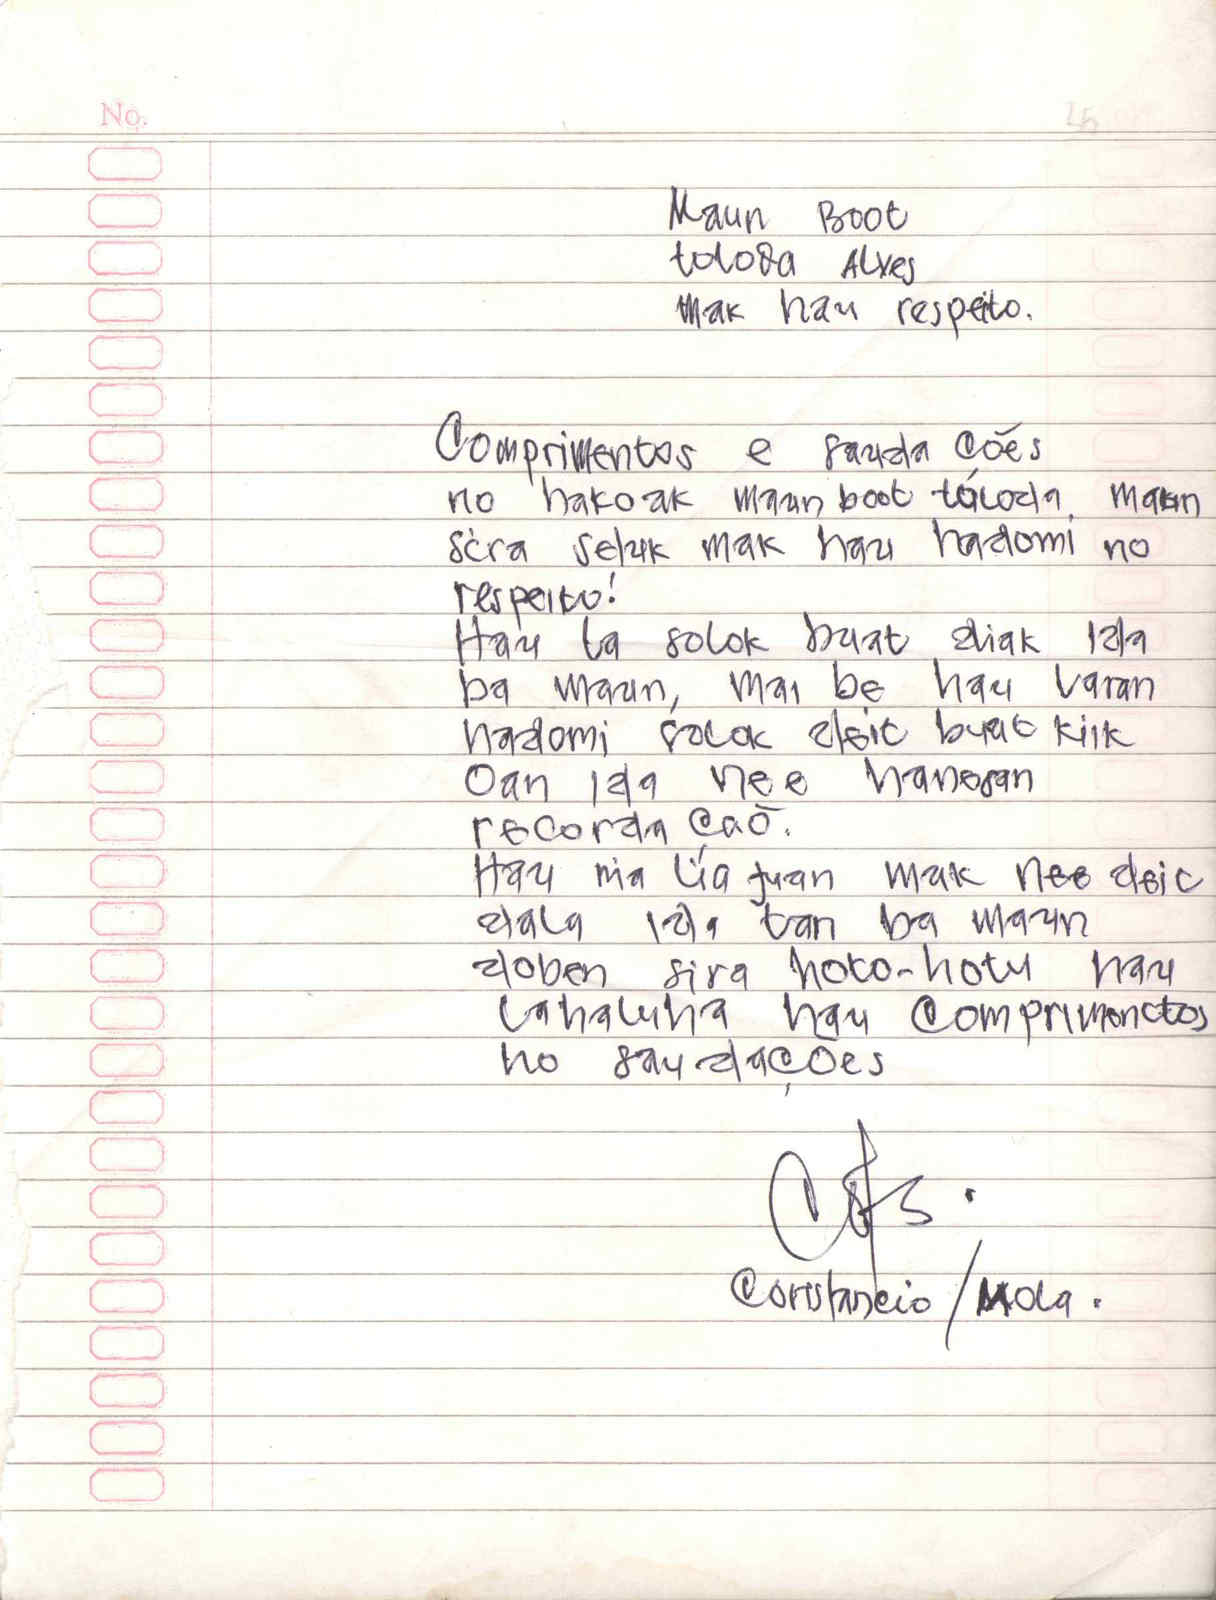 No.
Maun Boot
toloda Alves
mak hau respeito.
Comprimentos e saudações
no hakoak maun boot toloda, maun
sira seluk mak hau hadomi no
respeito!
Hau la solok buat diak ida
ba maun, mai be hau laran
hadomi solok deit buat kiik
Oan ida nee hanesan
recordaçaõ.
Hau nia lia fuan mak nee deit
dala ida tan ba maun
doben sira hoto-hotu hau
lahaluha hau Comprimenctos
no saudações
Constancio / Mola.